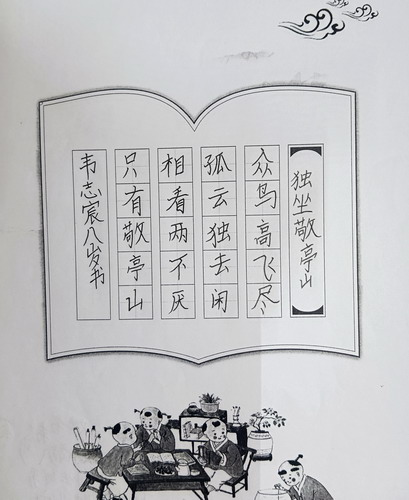 独坐敬亭山
众鸟高飞尽
孤云独去闲
相看两不厌
只有敬亭山
韦志宸八岁书